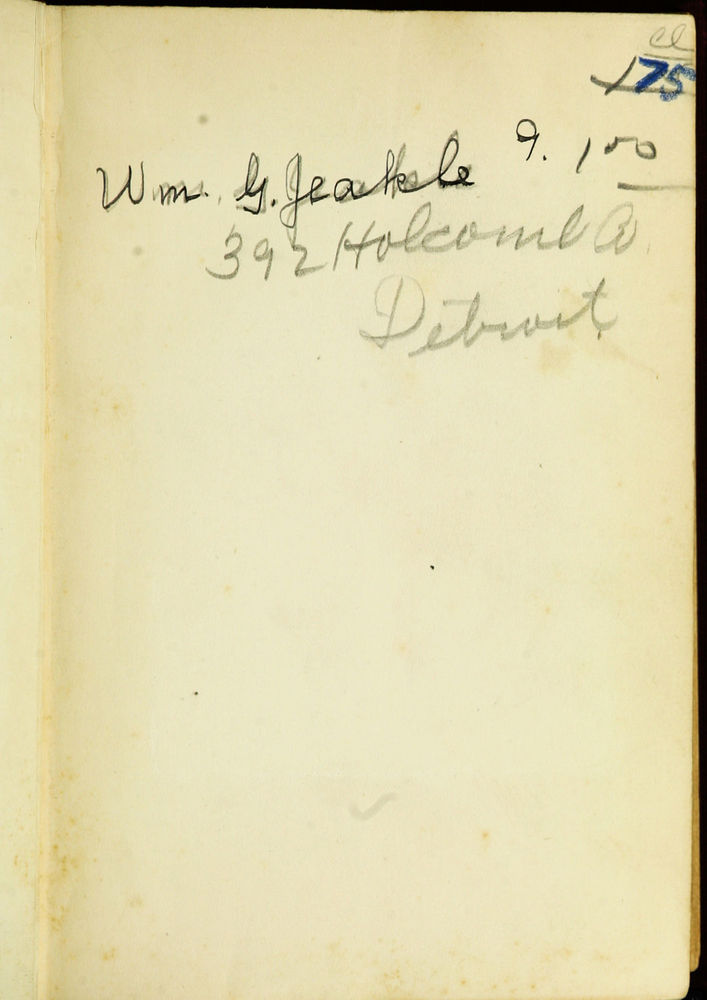 cl
175
Wm. G. Jeakle 9. 1.50
392 Holcomb A
Detroit